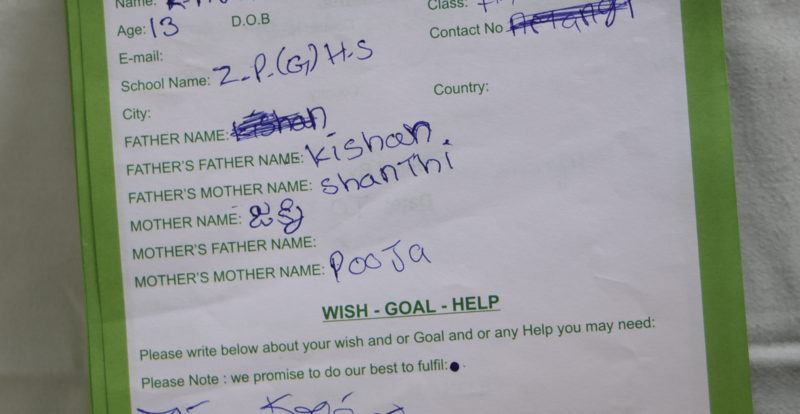 Name:
Class:
Age: 13 D.O.B
Contact No
E-mail:
School Name: Z.P.(G) H.S
City: Country:
FATHER NAME:
FATHER'S FATHER NAME: kishan
FATHER'S MOTHER NAME: shanThi
MOTHER NAME:
MOTHER'S FATHER NAME:
MOTHER'S MOTHER NAME: POOJA
WISH - GOAL - HELP
Please write below about your wish and or Goal and or any Help you may need:
Please Note : we promise to do our best to fulfil: